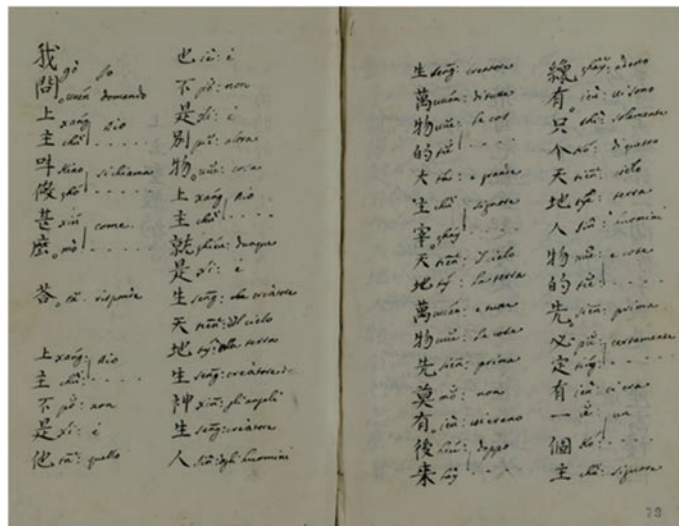 我 gò Io
問。uuén domando
上 xáng Dio
主 chù . . . .
叫 kiao si chiama
做 . . . .
甚 xin come
麽。mò . . . .
答。tă. risponde
上 xáng: Dio
主 chù: . . . .
不 pŏ: non
是 xí: è
他 tā: quello
也 iè: è
不 pŏ: non
是 xí: è
別 piĕ: altra
物。uŭe: cosa
上 xáng Dio
主 chù . . . .
就 dunque
是 xí: è
生 seng: creatore
天 tien: il cielo
地 tý: la terra
生 seng: creatore
神 xin: gli angeli
生 seng: creatore
人 gli huomini
生 seng: creatore
萬 uuán: di tutte
物 uŭe: le cose
的 tiĕ . . . .
大 tá: e grande
主 chù signore
宰。. . . .
天 tien: il cielo
地 tý: la terra
萬 uuán: e tutte
物 uŭe: le cose
先 sien: prima
莫 mŏ: non
有。ieù: ci erano
後 heú: doppo
来 lay . . . .
纔 adesso
有。ieù: ci sono
只 solamente
个 kó: di questo
天 tien: cielo
地 tý: terra
人 huomini
物 uŭe: e cose
的 tiĕ: . . . .
先。sien: prima
必 piĕ: certamente
定 ting: . . . .
有 ieù: ci era
一 iĕ: un
個 kó: . . . .
主 chù: signore
73